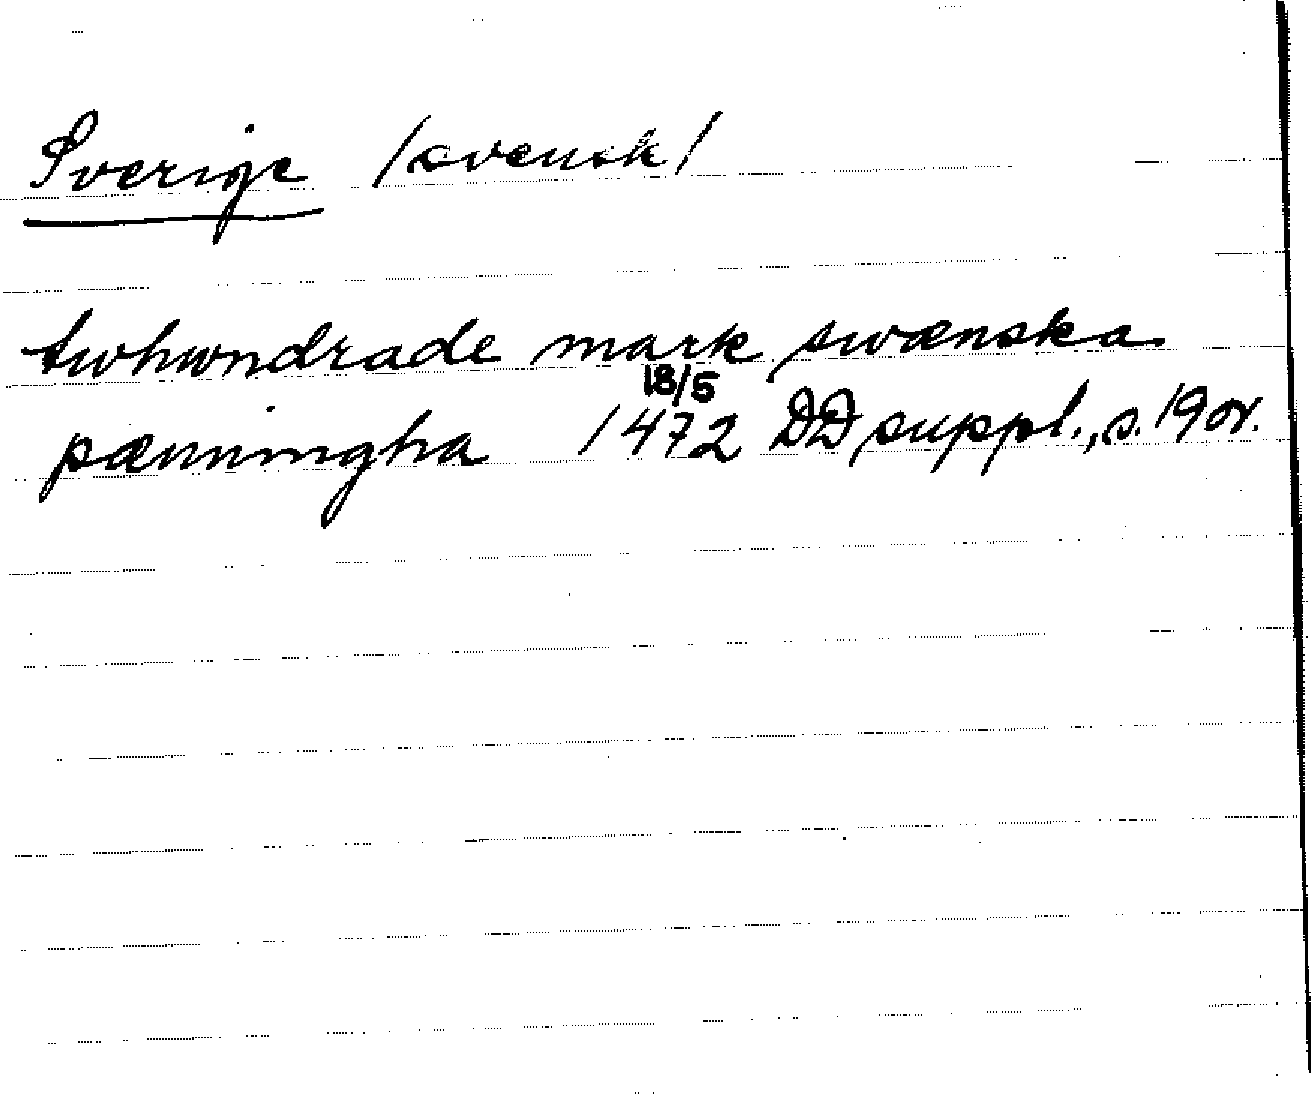 Sverige /svensk/
twhwndrade mark swænska
18/5
pænningha 1472 DD suppl., s. 19 ör.